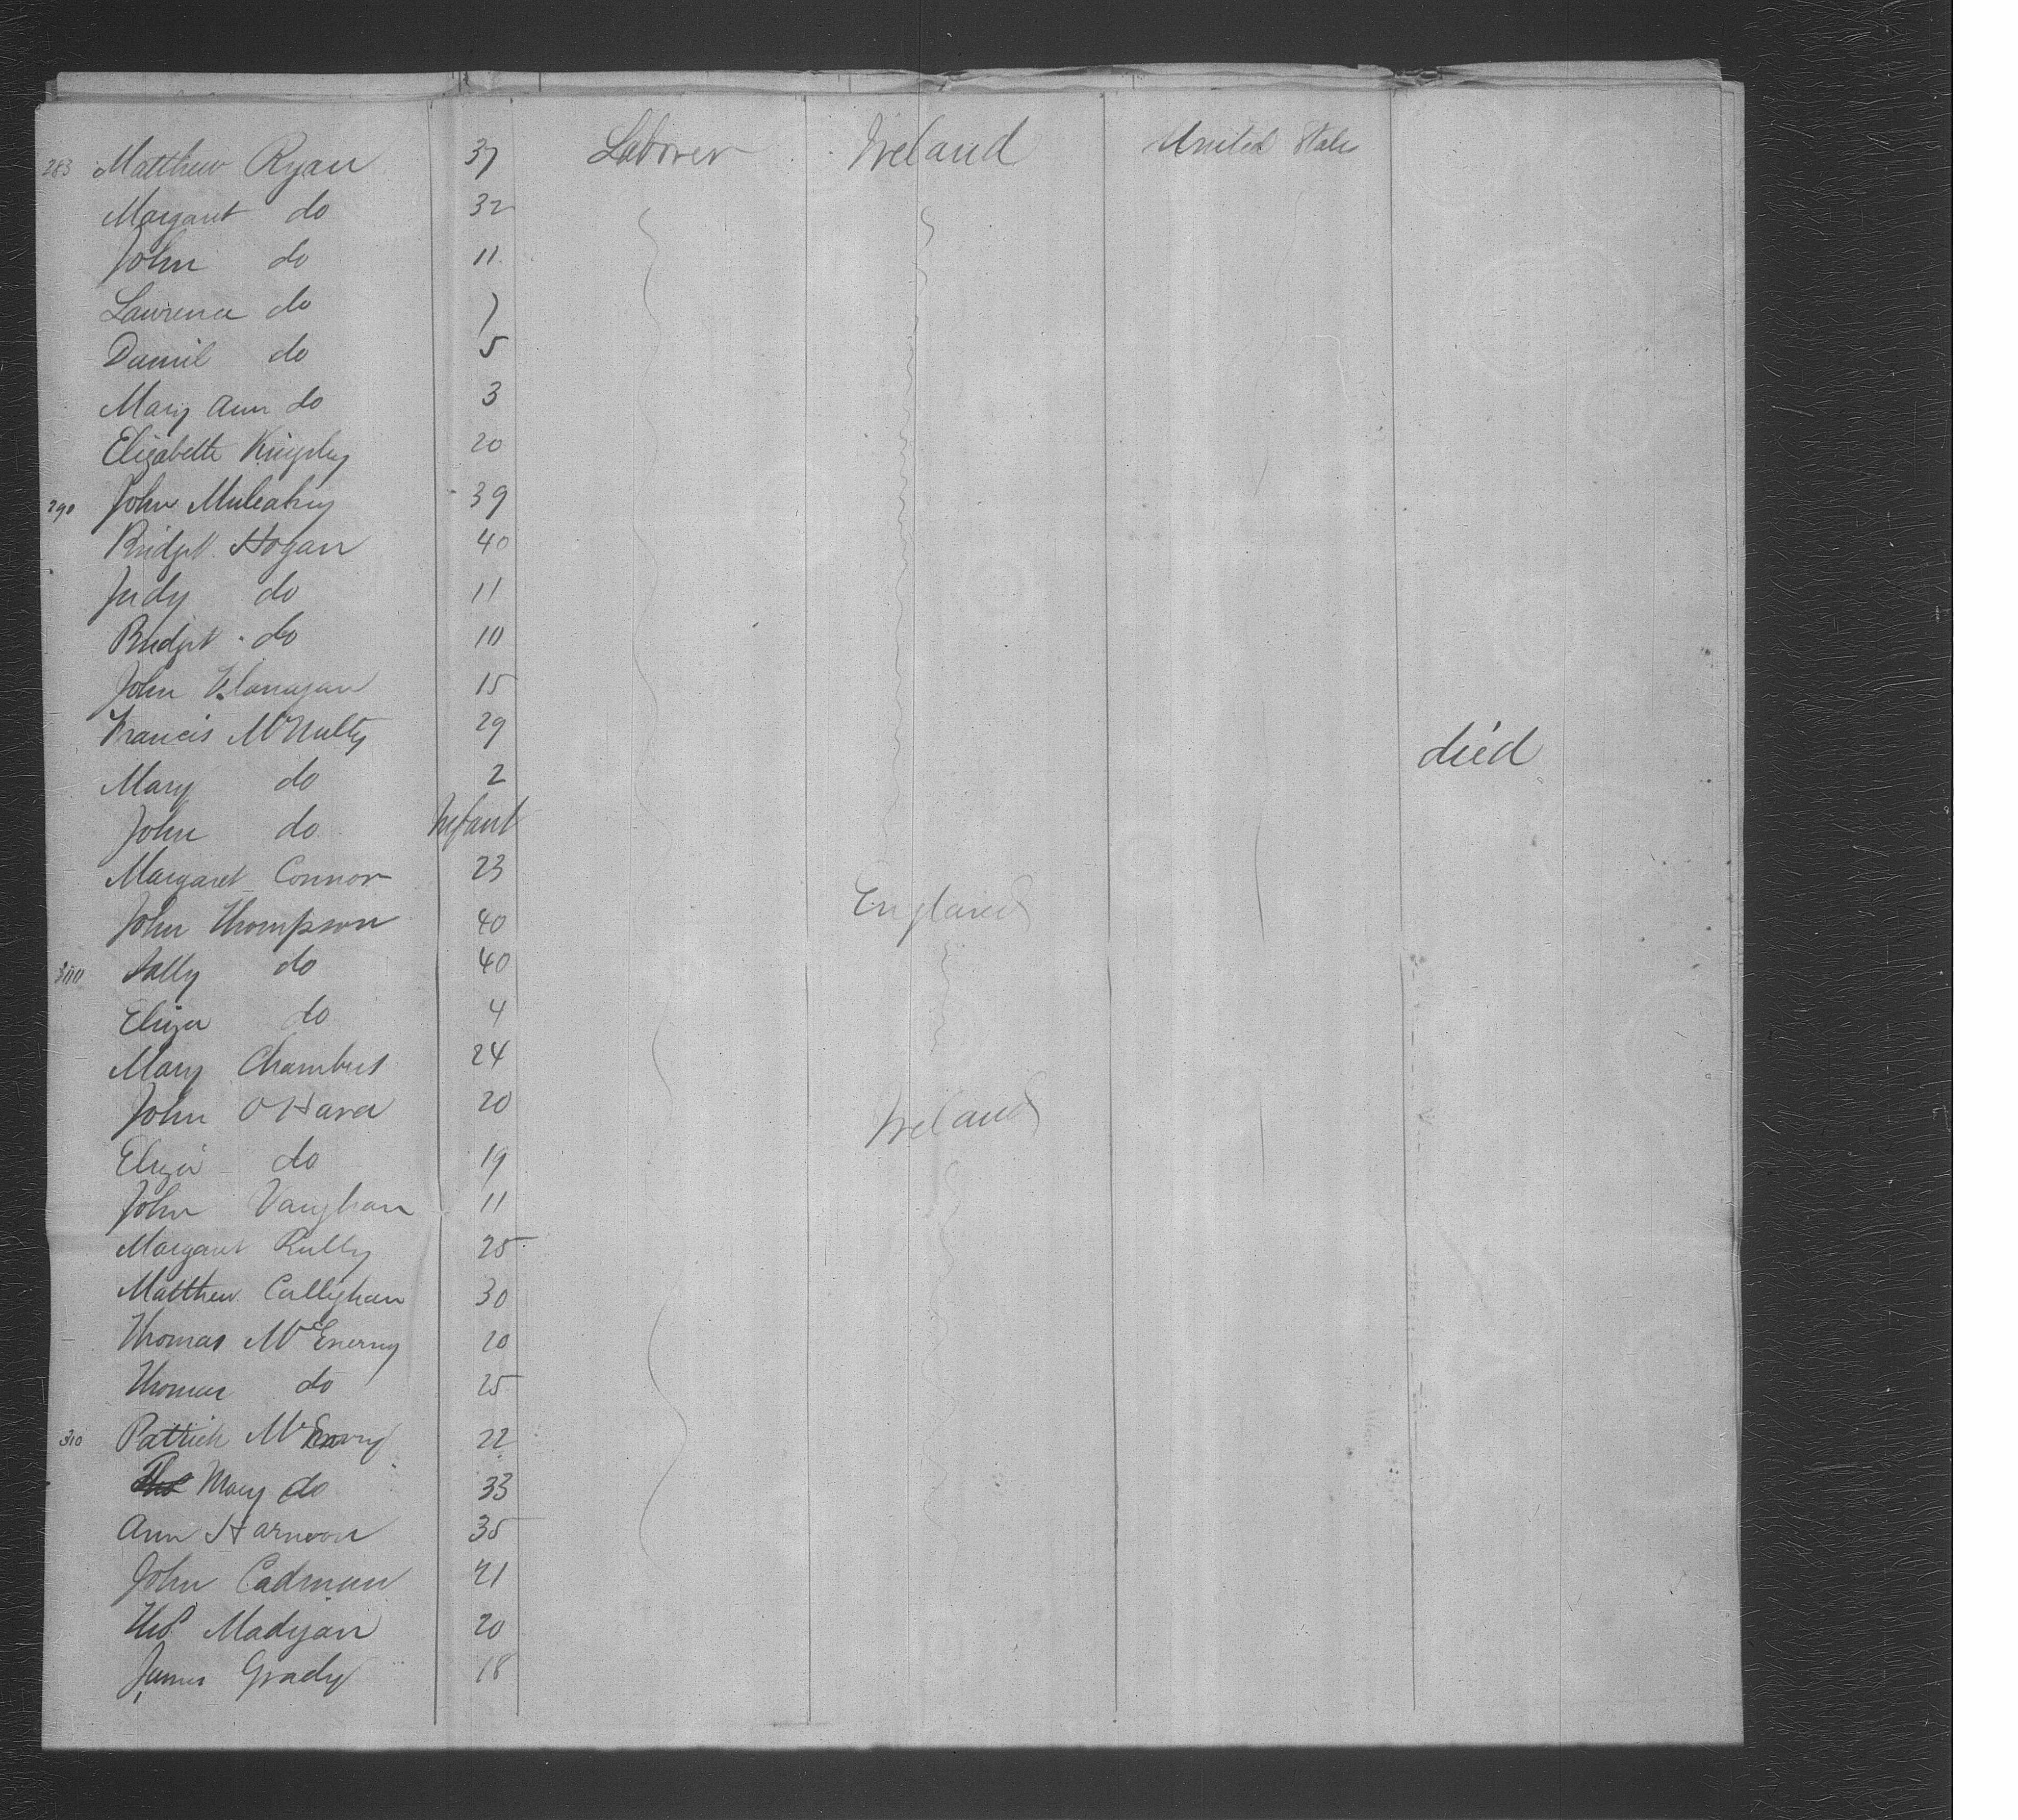 283 Matthew Ryan 37 Laborer Ireland United States
Margaret do 32
John do 11
Lawrence do 7
Daniel do 5
Mary Ann do 3
Elizabeth Kingsley 20
290 John Mulcahy 39
Bridget Hogan 40
Judy do 11
Bridget do 10
John Flanagan 15
Francis McNulty 29
Mary do 2 died
John do Infant
Margaret Connor 23
John Thompson 40 England
300 Sally do 40
Eliza do 4
Mary Chambers 24
John O'Hara 20 Ireland
Eliza do 19
John Vaughan 11
Margaret 25
Matthew Callighan 30
Thomas McEnerny 20
Thomas do 25
310 Patrick 22
Mary do 33
Ann 35
John Cadman 21
Thos Madigan 20
James Grady 18